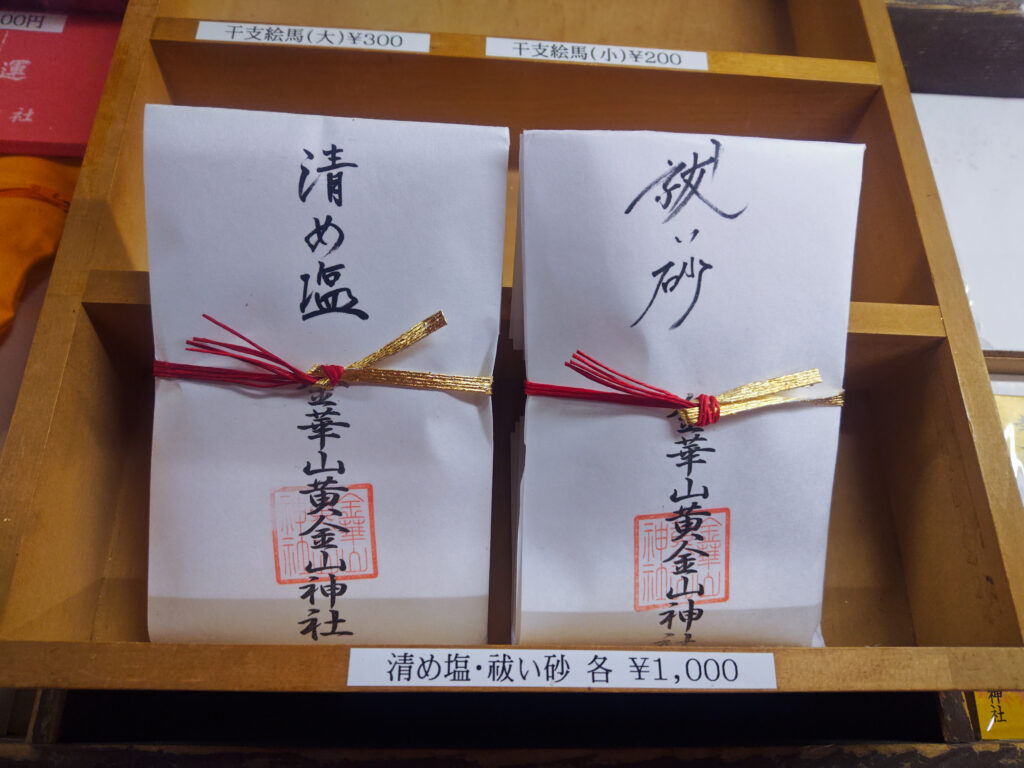 00円
運
社
干支絵馬(大)¥300
干支絵馬(小)¥200
清め塩
金華山黄金山神社
祓い砂
金華山黄金山神社
清め塩・祓い砂 各 ¥1,000
神社